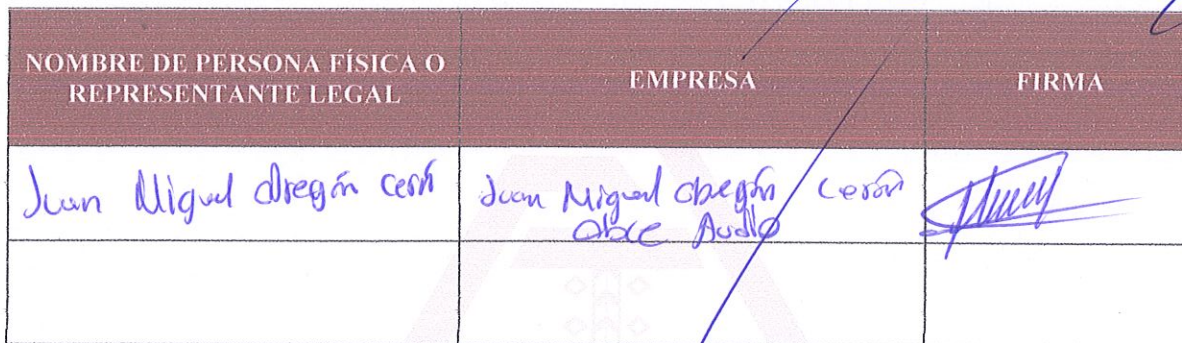 NOMBRE DE PERSONA FÍSICA O
REPRESENTANTE LEGAL
EMPRESA
FIRMA
Juan Miguel Obregón Cerón
Juan Miguel Obregón Cerón
Obce Audio